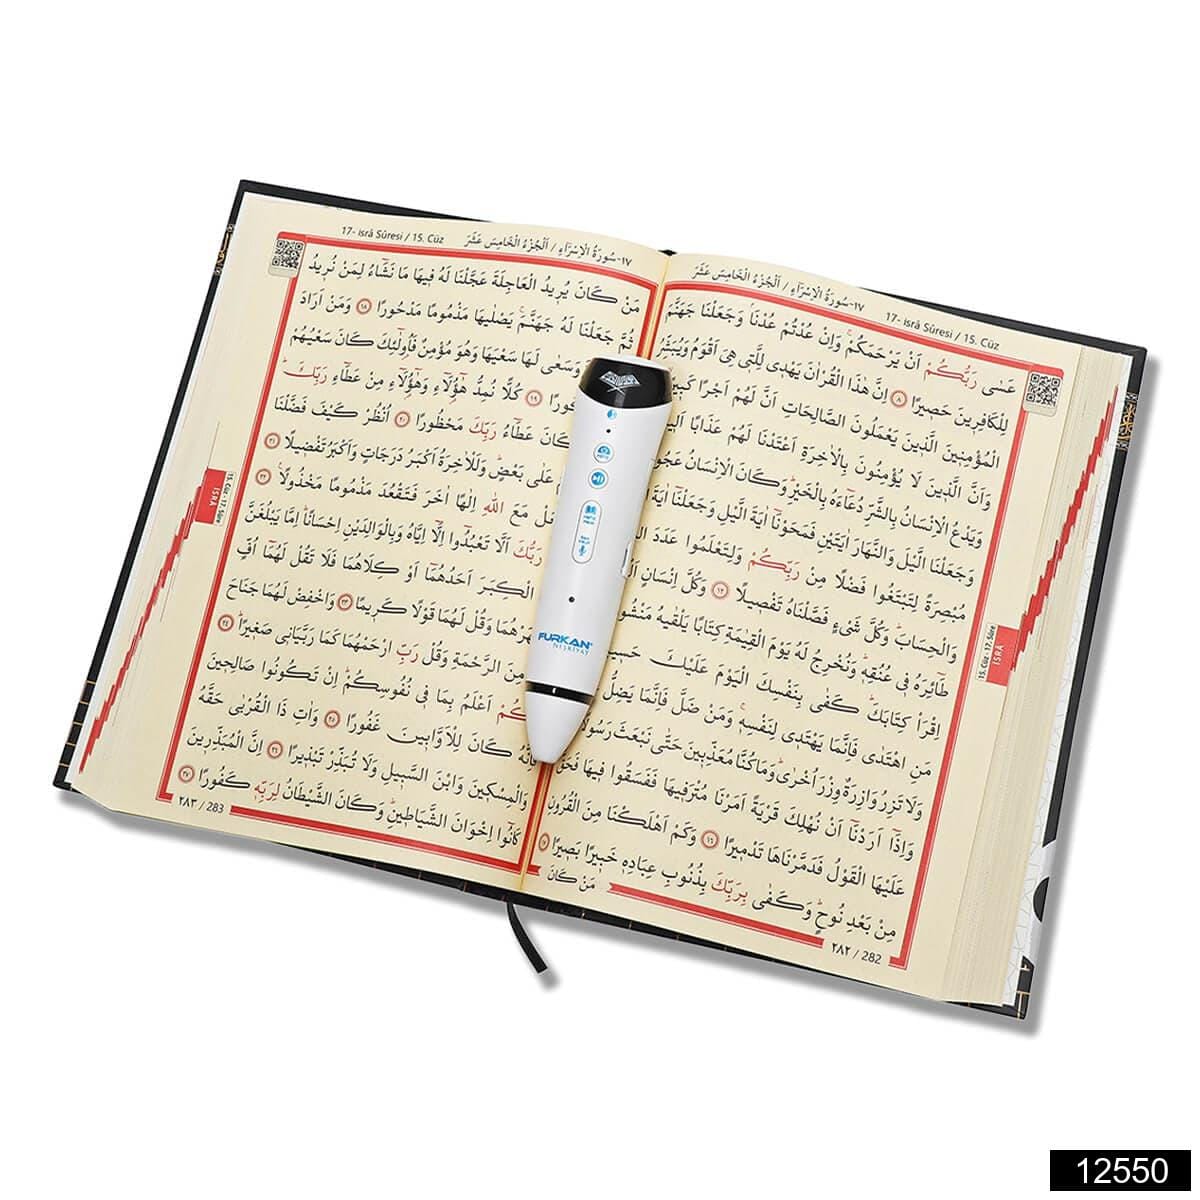 ١٧-سُورَةُ الْاِسْرَاءِ / اَلْجُزْءُ الْخَامِسَ عَشَرَ 17- isrâ Sûresi / 15. Cüz
عَسٰى رَبُّكُمْ اَنْ يَرْحَمَكُمْۚ وَاِنْ عُدْتُمْ عُدْنَاۢ وَجَعَلْنَا جَهَنَّمَ
لِلْكَافِرٖينَ حَصٖيرًا ٨ اِنَّ هٰذَا الْقُرْاٰنَ يَهْدٖى لِلَّتٖى هِىَ اَقْوَمُ وَيُبَشِّرُ
الْمُؤْمِنٖينَ الَّذٖينَ يَعْمَلُونَ الصَّالِحَاتِ اَنَّ لَهُمْ اَجْرًا
وَاَنَّ الَّذٖينَ لَا يُؤْمِنُونَ بِالْاٰخِرَةِ اَعْتَدْنَا لَهُمْ عَذَابًا
وَيَدْعُ الْاِنْسَانُ بِالشَّرِّ دُعَاءَهُ بِالْخَيْرِؕ وَكَانَ الْاِنْسَانُ
وَجَعَلْنَا الَّيْلَ وَالنَّهَارَ اٰيَتَيْنِ فَمَحَوْنَا اٰيَةَ الَّيْلِ وَجَعَلْنَا اٰيَةَ
مُبْصِرَةً لِتَبْتَغُوا فَضْلًا مِنْ رَبِّكُمْ وَلِتَعْلَمُوا عَدَدَ
وَالْحِسَابَؕ وَكُلَّ شَىْءٍ فَصَّلْنَاهُ تَفْصٖيلًا ١٢ وَكُلَّ اِنْسَانٍ
طَائِرَهُ فٖى عُنُقِهٖؕ وَنُخْرِجُ لَهُ يَوْمَ الْقِيٰمَةِ كِتَابًا يَلْقٰيهُ
اِقْرَاْ كِتَابَكَؕ كَفٰى بِنَفْسِكَ الْيَوْمَ عَلَيْكَ
مَنِ اهْتَدٰى فَاِنَّمَا يَهْتَدٖى لِنَفْسِهٖۚ وَمَنْ ضَلَّ فَاِنَّمَا يَضِلُّ
وَلَا تَزِرُ وَازِرَةٌ وِزْرَ اُخْرٰىؕ وَمَا كُنَّا مُعَذِّبٖينَ حَتّٰى نَبْعَثَ
وَاِذَا اَرَدْنَا اَنْ نُهْلِكَ قَرْيَةً اَمَرْنَا مُتْرَفٖيهَا فَفَسَقُوا فٖيهَا فَحَقَّ
عَلَيْهَا الْقَوْلُ فَدَمَّرْنَاهَا تَدْمٖيرًا ١٦ وَكَمْ اَهْلَكْنَا مِنَ الْقُرُونِ
مِنْ بَعْدِ نُوحٍؕ وَكَفٰى بِرَبِّكَ بِذُنُوبِ عِبَادِهٖ خَبٖيرًا بَصٖيرًا ١٧
مَنْ كَانَ
٢٨٢ / 282
15. Cüz - 17. Sûre
İSRÂ
17- isrâ Sûresi / 15. Cüz ١٧-سُورَةُ الْاِسْرَاءِ / اَلْجُزْءُ الْخَامِسَ عَشَرَ
مَنْ كَانَ يُرٖيدُ الْعَاجِلَةَ عَجَّلْنَا لَهُ فٖيهَا مَا نَشَاءُ لِمَنْ نُرٖيدُ
ثُمَّ جَعَلْنَا لَهُ جَهَنَّمَۚ يَصْلٰيهَا مَذْمُومًا مَدْحُورًا ١٨ وَمَنْ اَرَادَ
وَسَعٰى لَهَا سَعْيَهَا وَهُوَ مُؤْمِنٌ فَاُولٰئِكَ كَانَ سَعْيُهُمْ
١٩ كُلًّا نُمِدُّ هٰؤُلَاءِ وَهٰؤُلَاءِ مِنْ عَطَاءِ رَبِّكَؕ
كَانَ عَطَاءُ رَبِّكَ مَحْظُورًا ٢٠ اُنْظُرْ كَيْفَ فَضَّلْنَا
عَلٰى بَعْضٍؕ وَلَلْاٰخِرَةُ اَكْبَرُ دَرَجَاتٍ وَاَكْبَرُ تَفْضٖيلًا ٢١
مَعَ اللّٰهِ اِلٰهًا اٰخَرَ فَتَقْعُدَ مَذْمُومًا مَخْذُولًا ٢٢
رَبُّكَ اَلَّا تَعْبُدُوا اِلَّا اِيَّاهُ وَبِالْوَالِدَيْنِ اِحْسَانًاؕ اِمَّا يَبْلُغَنَّ
الْكِبَرَ اَحَدُهُمَا اَوْ كِلَاهُمَا فَلَا تَقُلْ لَهُمَا اُفٍّ
وَقُلْ لَهُمَا قَوْلًا كَرٖيمًا ٢٣ وَاخْفِضْ لَهُمَا جَنَاحَ
مِنَ الرَّحْمَةِ وَقُلْ رَبِّ ارْحَمْهُمَا كَمَا رَبَّيَانٖى صَغٖيرًا ٢٤
اَعْلَمُ بِمَا فٖى نُفُوسِكُمْؕ اِنْ تَكُونُوا صَالِحٖينَ
فَاِنَّهُ كَانَ لِلْاَوَّابٖينَ غَفُورًا ٢٥ وَاٰتِ ذَا الْقُرْبٰى حَقَّهُ
وَالْمِسْكٖينَ وَابْنَ السَّبٖيلِ وَلَا تُبَذِّرْ تَبْذٖيرًا ٢٦ اِنَّ الْمُبَذِّرٖينَ
كَانُوا اِخْوَانَ الشَّيَاطٖينِؕ وَكَانَ الشَّيْطَانُ لِرَبِّهٖ كَفُورًا ٢٧
٢٨٣ / 283
15. Cüz - 17. Sûre
İSRÂ
FURKAN
NEŞRİYAT
12550